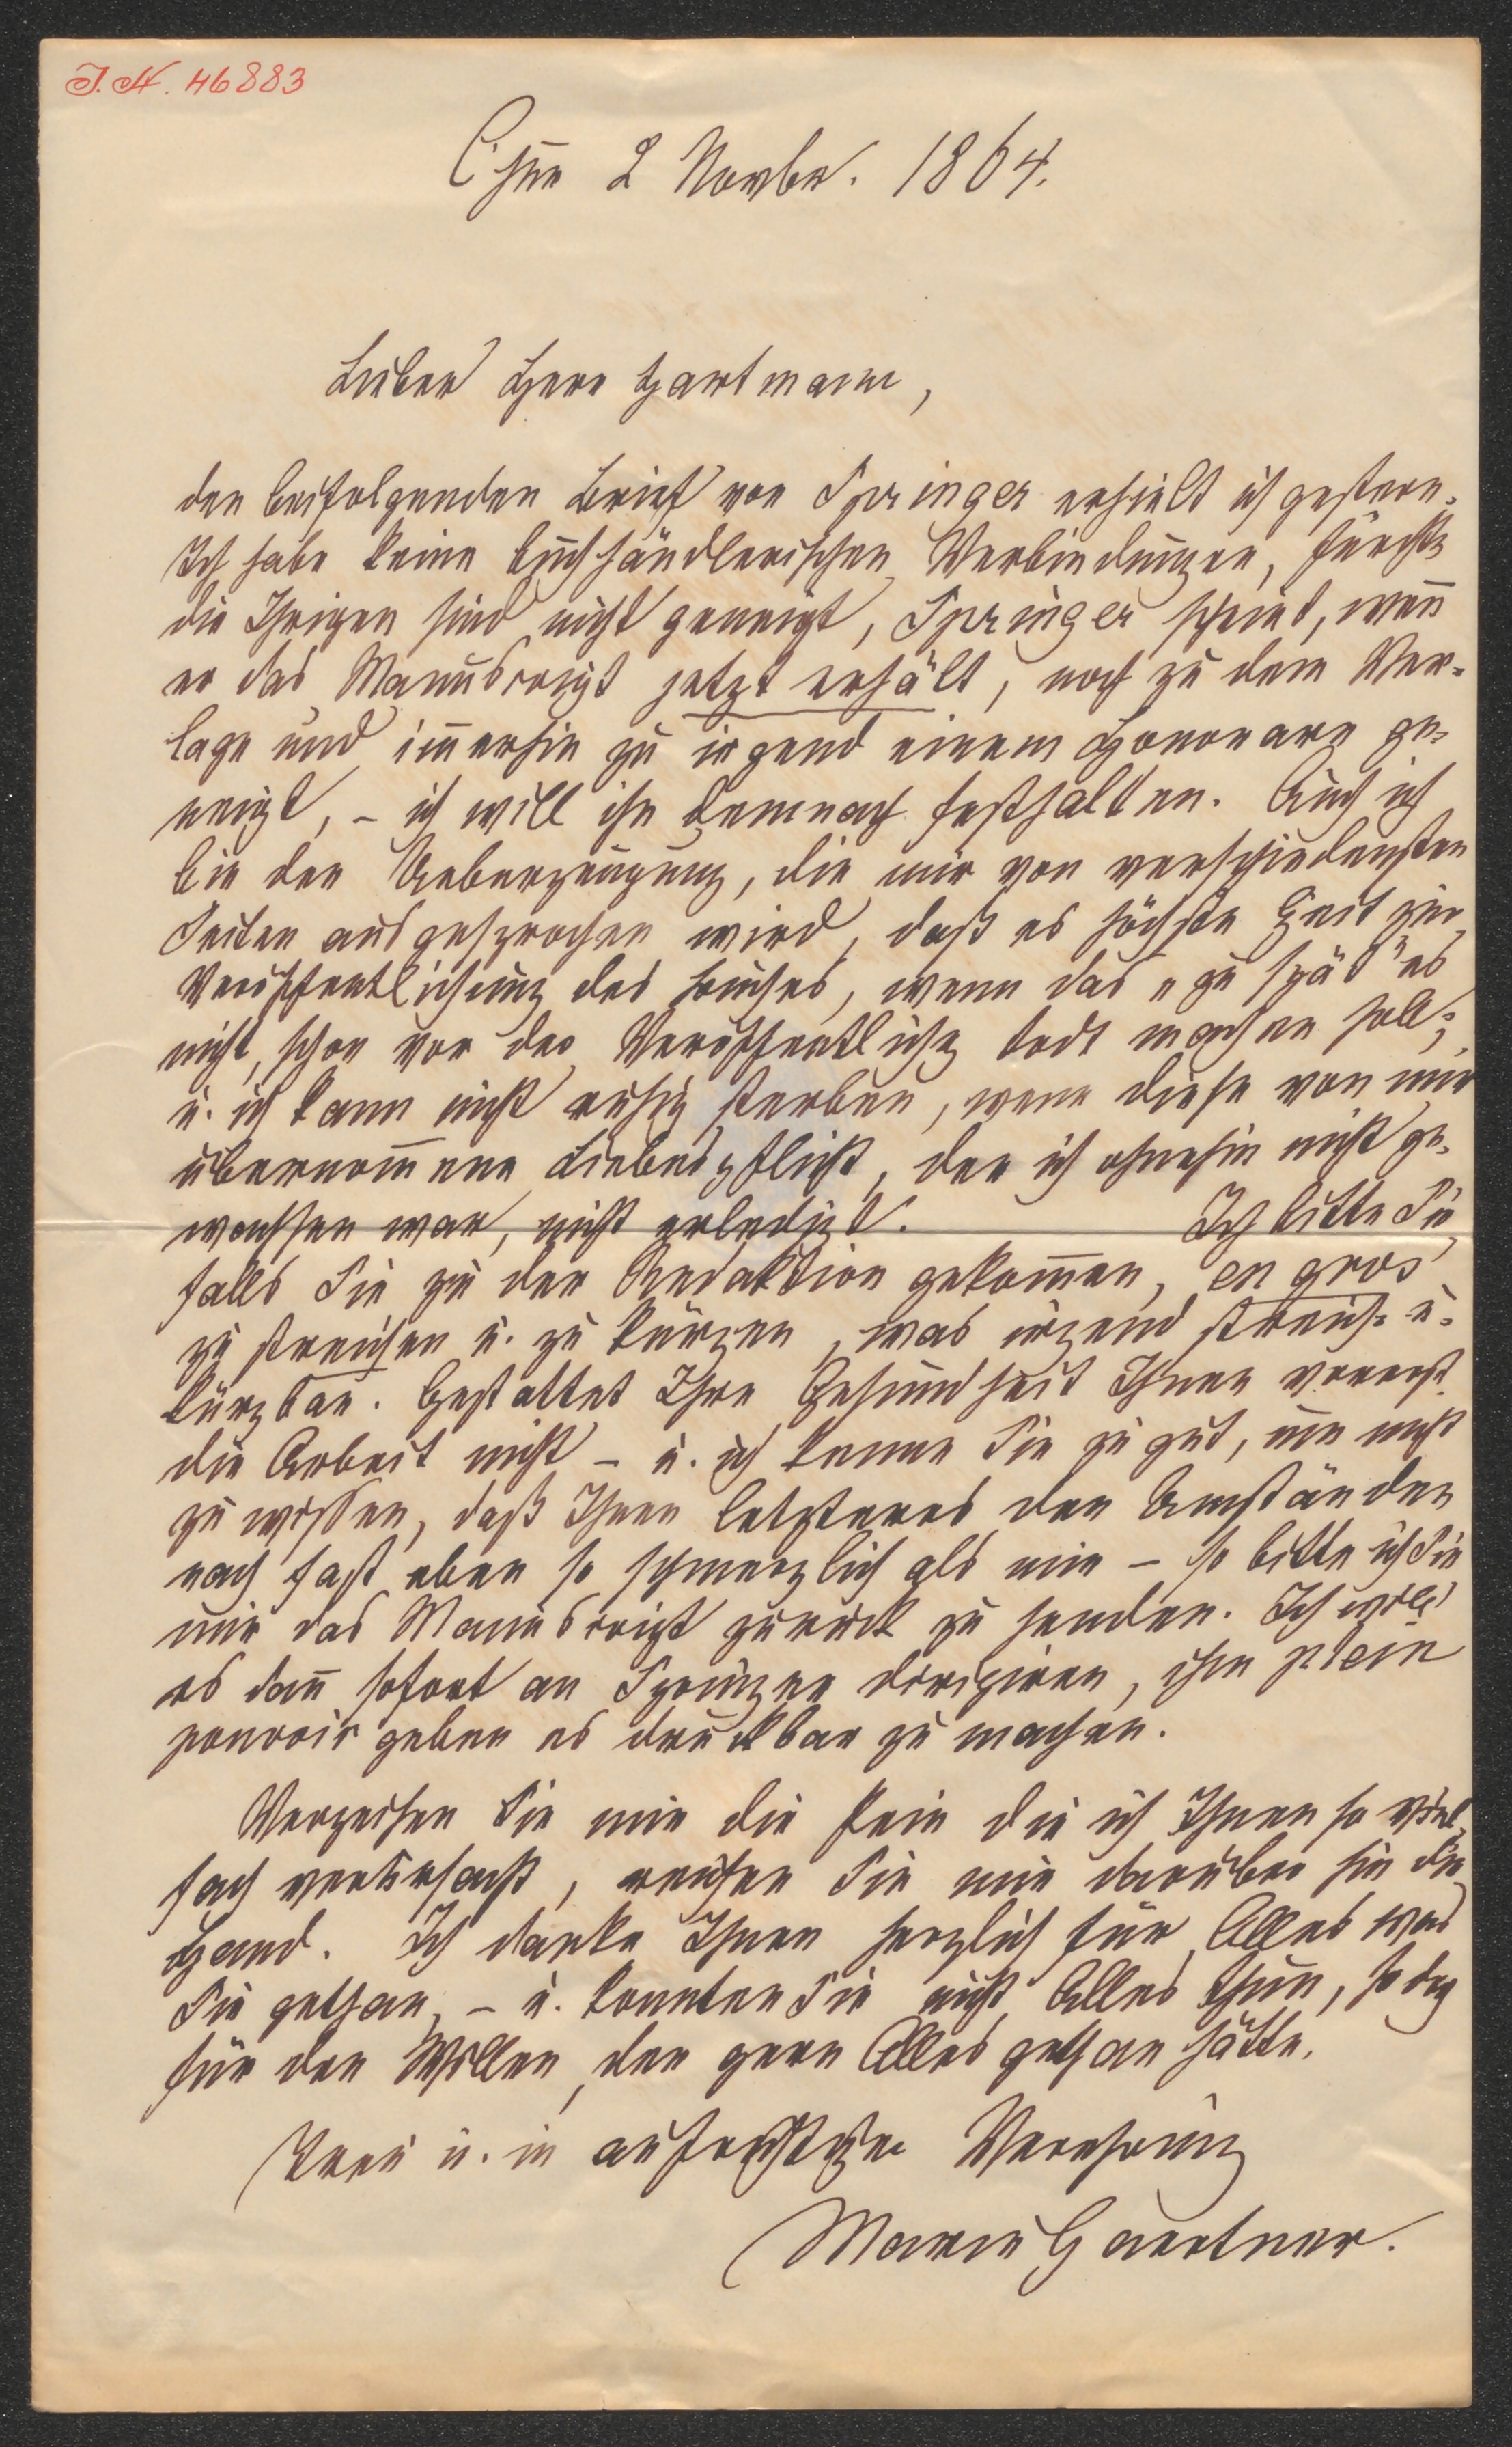 J. N. 46883
2 Novbr. 1864.
Lieber Herr Hartmann,
den beifolgenden Brief von Springer erhielt ich gestern.
Ich habe keine buchhändlerischen Verbindungen, fürchte
die Ihrigen sind nicht geneigt, Springer scheint, weñ
er das Manuscript jetzt erhält, noch zu dem Ver-
lage und im̄erhin zu irgend einem Honorare ge-
neigt, – ich will ihn demnach festhalten. Auch ich
bin der Ueberzeugung, die mir von verschiedensten
Seiten ausgesprochen wird, daß es höchste Zeit zur
Veröffentlichung des Buches, wenn das „zu spät" es
nicht, schon vor der Veröffentlichg todt machen soll;
u. ich kann nicht ruhig sterben, wenn diese von mir
übernom̄ene Liebespflicht, der ich ohnehin nicht ge-
wachsen war, nicht erledigt. Ich bitte Sie
falls Sie zu der Redaktion gekom̄en, en gros
zu streichen u. zu kürzen, was irgend streich- u.
kürzbar. Gestattet Ihre Gesundheit Ihnen vorerst
die Arbeit nicht – u. ich kenne Sie zu gut, um nicht
zu wissen, daß Ihnen letzteres den Umständen
nach fast eben so schmerzlich als mir – so bitte ich Sie
mir das Manuscript zurück zu senden. Ich will
es dañ sofort an Springer dirigiren, ihm plein
pouvoir geben es druckbar zu machen.
Verzeihen Sie mir die Pein die ich Ihnen so viel-
fach verursacht, reichen Sie mir darüber hin die
Hand. Ich danke Ihnen herzlich für Alles was
Sie gethan, – u. konnten Sie nicht Alles thun, so doch
für den Willen, der gern Alles gethan hätte.
Treu u. in aufrichtiger Verehrung
Marie Gaertner.